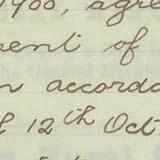 1900, agre
ment of
n accorda
12th Oct